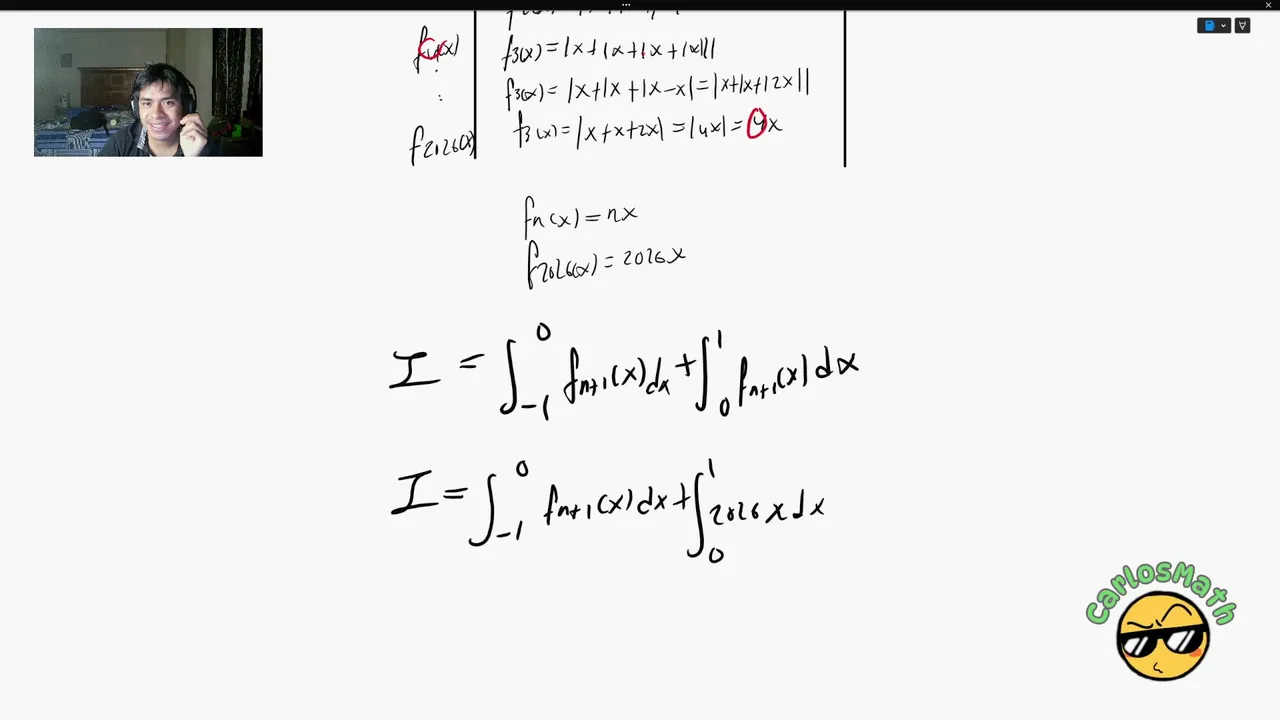 f4(x)
:
f2026(x)
f3(x) = |x+|x+|x+|x|||
f3(x) = |x+|x+|x-x| = |x+|x+|2x||
f3(x) = |x+x+2x| = |4x| = 4x
fn(x) = nx
f2026(x) = 2026x
I = ∫_{-1}^{0} fn+1(x)dx + ∫_{0}^{1} fn+1(x)dx
I = ∫_{-1}^{0} fn+1(x)dx + ∫_{0}^{1} 2026xdx
CarlosMath